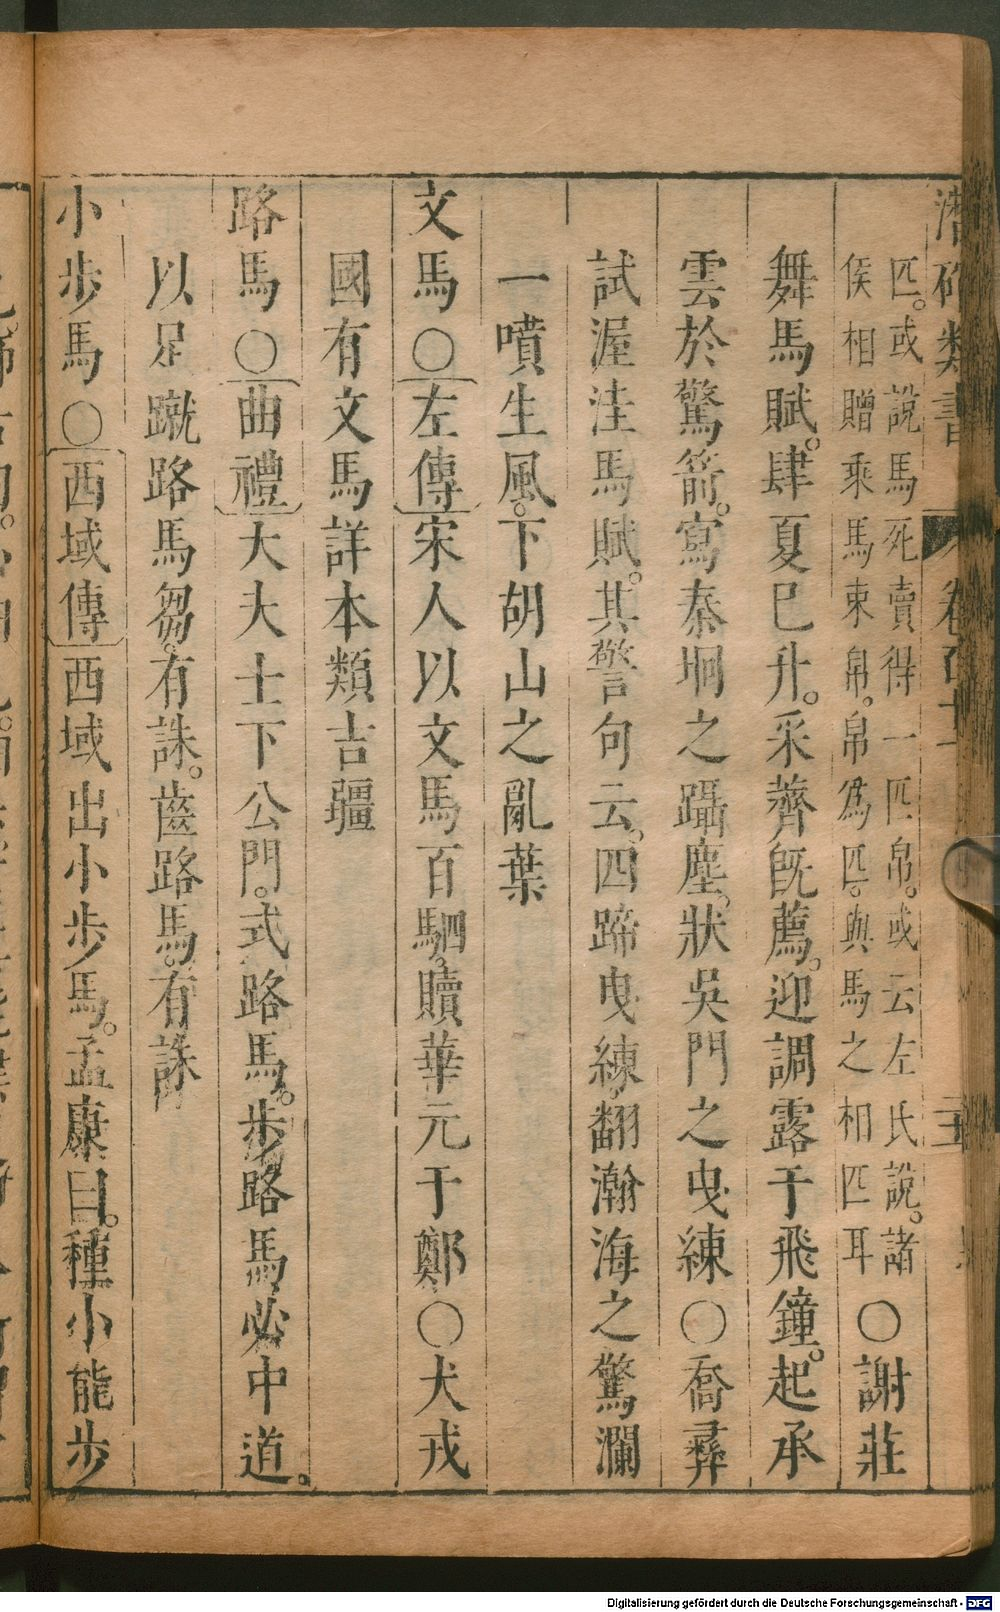 潛確類書
匹。或說馬死賣得一匹帛。或云左氏說。諸
侯相贈乘馬束帛。帛為匹。與馬之相匹耳
○謝莊
舞馬賦。肆夏巳升。采薺旣薦。迎調露于飛鐘。起承
雲於驚箭。寫泰坰之躡塵。狀吳門之曳練○喬彞
試渥洼馬賦。其警句云。四蹄曳練。翻瀚海之驚瀾
一噴生風。下胡山之亂葉
文馬○左傳宋人以文馬百駟。贖華元于鄭○犬戎
國有文馬詳本類吉疆
路馬○曲禮大夫士下公門。式路馬。步路馬必中道。
以足蹴路馬芻。有誅。齒路馬。有誅
小步馬○西域傳西域出小步馬。孟康曰。種小能步
Digitalisierung gefördert durch die Deutsche Forschungsgemeinschaft - DFG